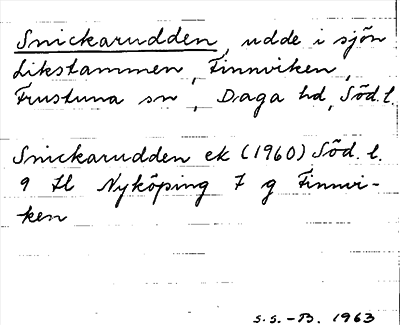 Snickarudden, udde i sjön
Likstammen, Finnviken,
Frustuna sn, Daga hd, Söd.l.
Snickarudden ek (1960) Söd. l.
9 Hl Nyköping 7 g Finnvi-
ken
S.S.-B. 1963